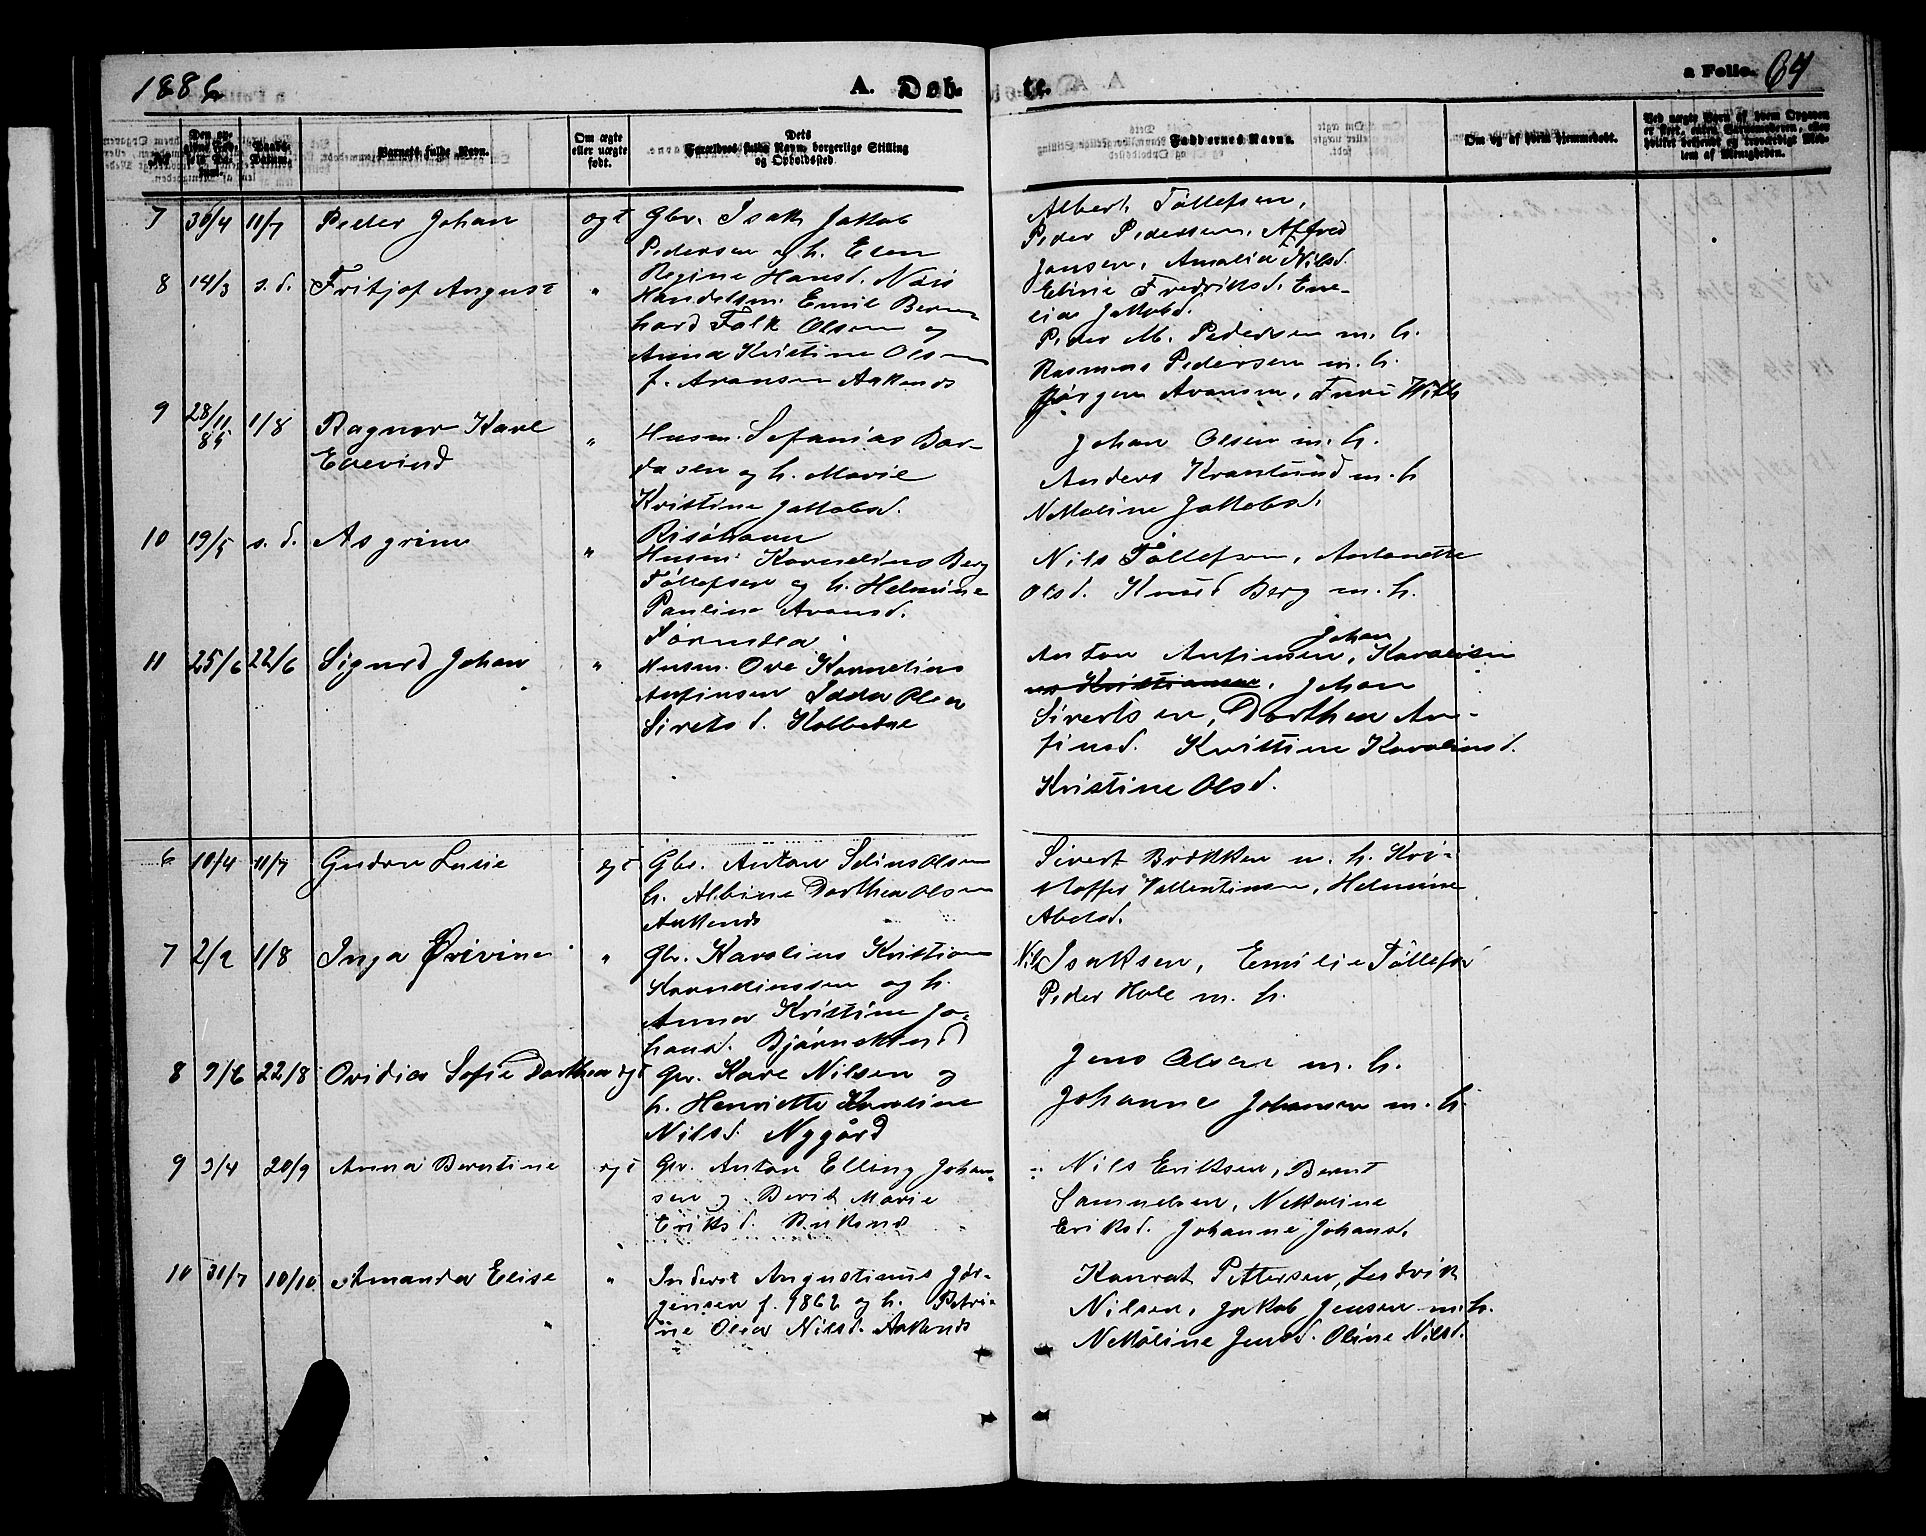 1886
A. Døb-
te.
a Folio. 64
No.
Barnets fulde Navn.
Om ægte eller uægte født.
Dets Forældres fulde Navn, borgerlige Stilling og Opholdssted.
Faddernes Navne.
Om og af hvem hjemmedøbt.
7 30/4 11/7 Peder Johan egt Gbr. Isak Jakob
Pedersen og h. Elen
Regine Hansd. Næs
Albert Tøllefsen,
Peder Pedersen, Alfred
Jensen, Amalia Nilsd.
Eline Fredriksd. Eme-
lia Jakobsd.
8 14/3 s. d. Fritjof August " Handelsm. Emil Bern-
hard Falk Olsen og
Anna Kristine Olsen
f. Aronsen Aakenes
Peder M. Pedersen m. h.
Rasmus Pedersen m. h.
Jørgen Aronsen,
9 28/11 85 1/8 Ragnar Karl
Edevind
" Husm. Sefanias Bar-
dosen og h. Marie
Kristine Jakobsd.
Risøhavn
Johan Olsen m. h.
Anders Kvantund m. h
Nekoline Jakobsd.
10 19/5 s. d. Asgrim " Husm. Kornelius Berg
Tøllefsen og h. Helmine
Pauline Aronsd.
Nils Tøllefsen, Antonette
Olsd. Knud Berg m. h.
11 25/6 22/6 Sigurd Johan " Husm. Ove Kornelius
Anfinsen Edda Olea
Sivets d. Kolbeine
Johan
Anton Anfinsen, Karolisen
us Kristiansen, Johan
Sivertsen, Dorthea An-
finsd. Kristine Karolinsd.
Kristine Olsd.
6 10/4 11/7 Gudrun Lusie egt Gbr. Anton Selius Olsen
h. Albine Dorthea Olsen
Aakenes
Sivert Brækken m. h. Kri-
stoffer Vallentinsen, Helmine
Abelsd.
7 2/2 1/8 Inga Øvivine " Gbr. Karolius Kristian
Korneliussen og h.
Anna Kristine Jo-
hansd. Bjørnskind
Nils Isaksen, Emilie Tøllefs
Peder Hole m. h.
8 9/6 22/8 Ovidia Sofie Dorthea egt Gbr. Karl Nilsen og
h. Henriette Karoline
Nilsd. Nygård
Jens Olsen m. h.
Johannes Johansen m. h.
9 3/4 20/9 Anna Berntine egt Gbr. Anton Elling Johan-
sen og Berit Marie
Eriksd. Buksnes
Nils Eriksen, Bernt
Samuelsen, Nekoline
Eriksd. Johanne Johansd.
10 31/7 10/10 Amanda Elise " Inderst Augustinus Jør-
gensen f. 1862 og h. Petri-
ne Olea Nilsd. Aakenes
Konrat Pettersen, Ludvik
Nilsen, Jakob Jensen m. h.
Nekoline Jensd. Oline Nilsd.